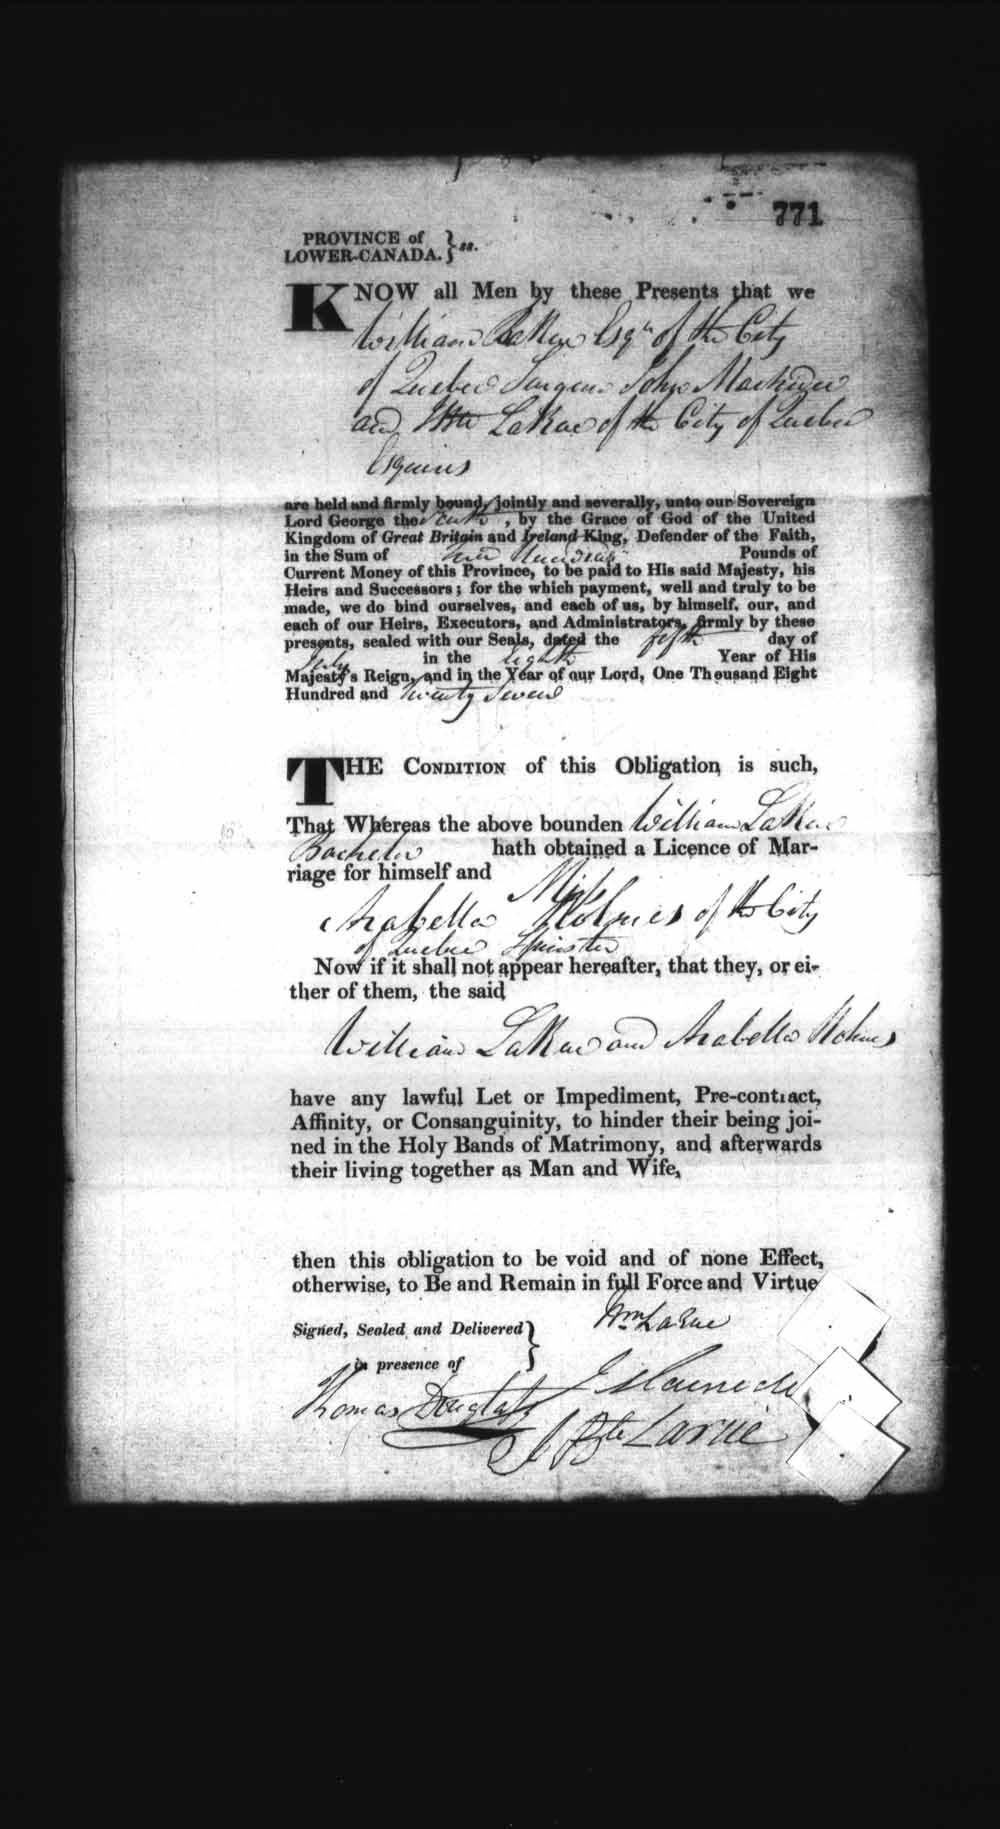 771
PROVINCE of
LOWER-CANADA. } ss.
KNOW all Men by these Presents that we
William LaRue Esqr. of the City
of Quebec Surgeon John
and Bte LaRue of the City of Quebec
Esquires
are held and firmly bound, jointly and severally, unto our Sovereign
Lord George the fourth, by the Grace of God of the United
Kingdom of Great Britain and Ireland King, Defender of the Faith,
in the Sum of two hundred Pounds of
Current Money of this Province, to be paid to His said Majesty, his
Heirs and Successors; for the which payment, well and truly to be
made, we do bind ourselves, and each of us, by himself, our, and
each of our Heirs, Executors, and Administrators, firmly by these
presents, sealed with our Seals, dated the fifth day of
July in the Eighth Year of His
Majesty's Reign, and in the Year of our Lord, One Thousand Eight
Hundred and twenty Seven
THE CONDITION of this Obligation is such,
That Whereas the above bounden William LaRue
Bachelor hath obtained a Licence of Mar-
riage for himself and Miss
Arabella Holmes of the City
of Quebec Spinster
Now if it shall not appear hereafter, that they, or ei-
ther of them, the said
William LaRue and Arabella Holmes
have any lawful Let or Impediment, Pre-contract,
Affinity, or Consanguinity, to hinder their being joi-
ned in the Holy Bands of Matrimony, and afterwards
their living together as Man and Wife,
then this obligation to be void and of none Effect,
otherwise, to Be and Remain in full Force and Virtue
Wm. LaRue
Signed, Sealed and Delivered }
in presence of
Thomas Douglass
J Bte Larue